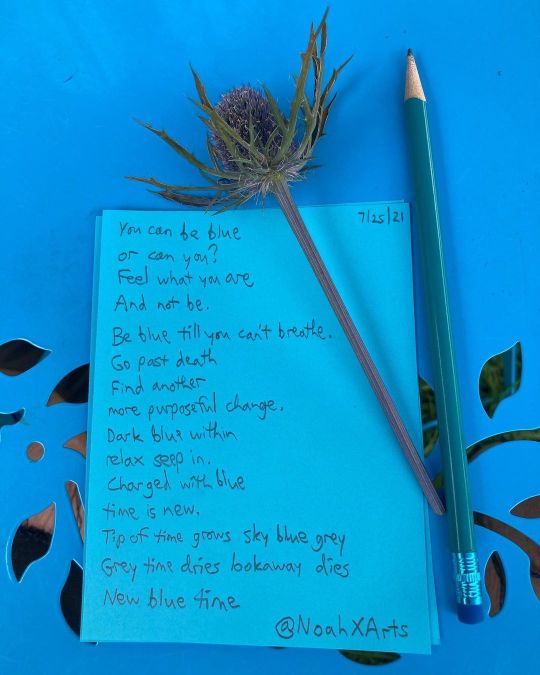 7/25/21
You can be blue
or can you?
Feel what you are
And not be.
Be blue till you can't breathe.
Go past death
Find another
more purposeful change.
Dark blue within
relax seep in.
Charged with blue
time is new.
Tip of time grows sky blue grey
Grey time dries lookaway dies
New blue time
@NoahXArts